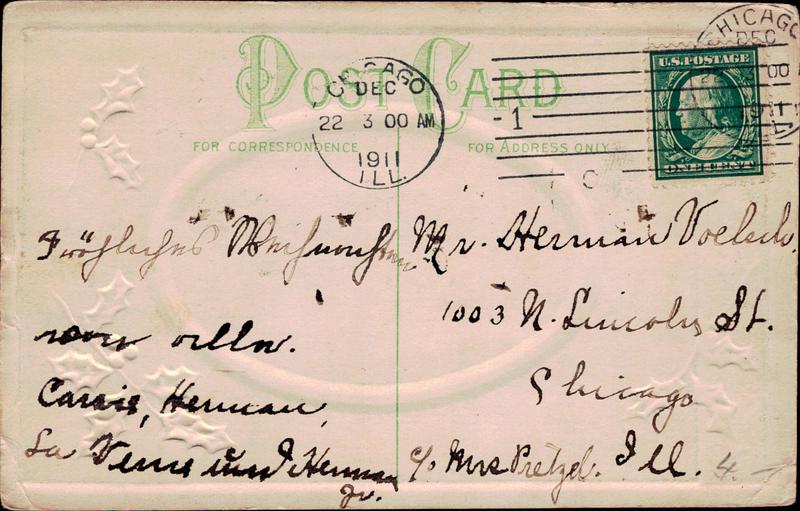 POST CARD
FOR CORRESPONDENCE
FOR ADDRESS ONLY
CHICAGO
DEC
22 3 00 AM
1911
ILL.
1
CHICAGO
DEC
00
U.S. POSTAGE
ONE CENT
Fröhliches Weihnachten
von allen.
Carrie, Herman,
La Verne und Herman
Jr.
Mr. Herman Voelsch.
1003 N. Lincoln St.
Chicago
c/o Mrs Pretzel. Ill.
4